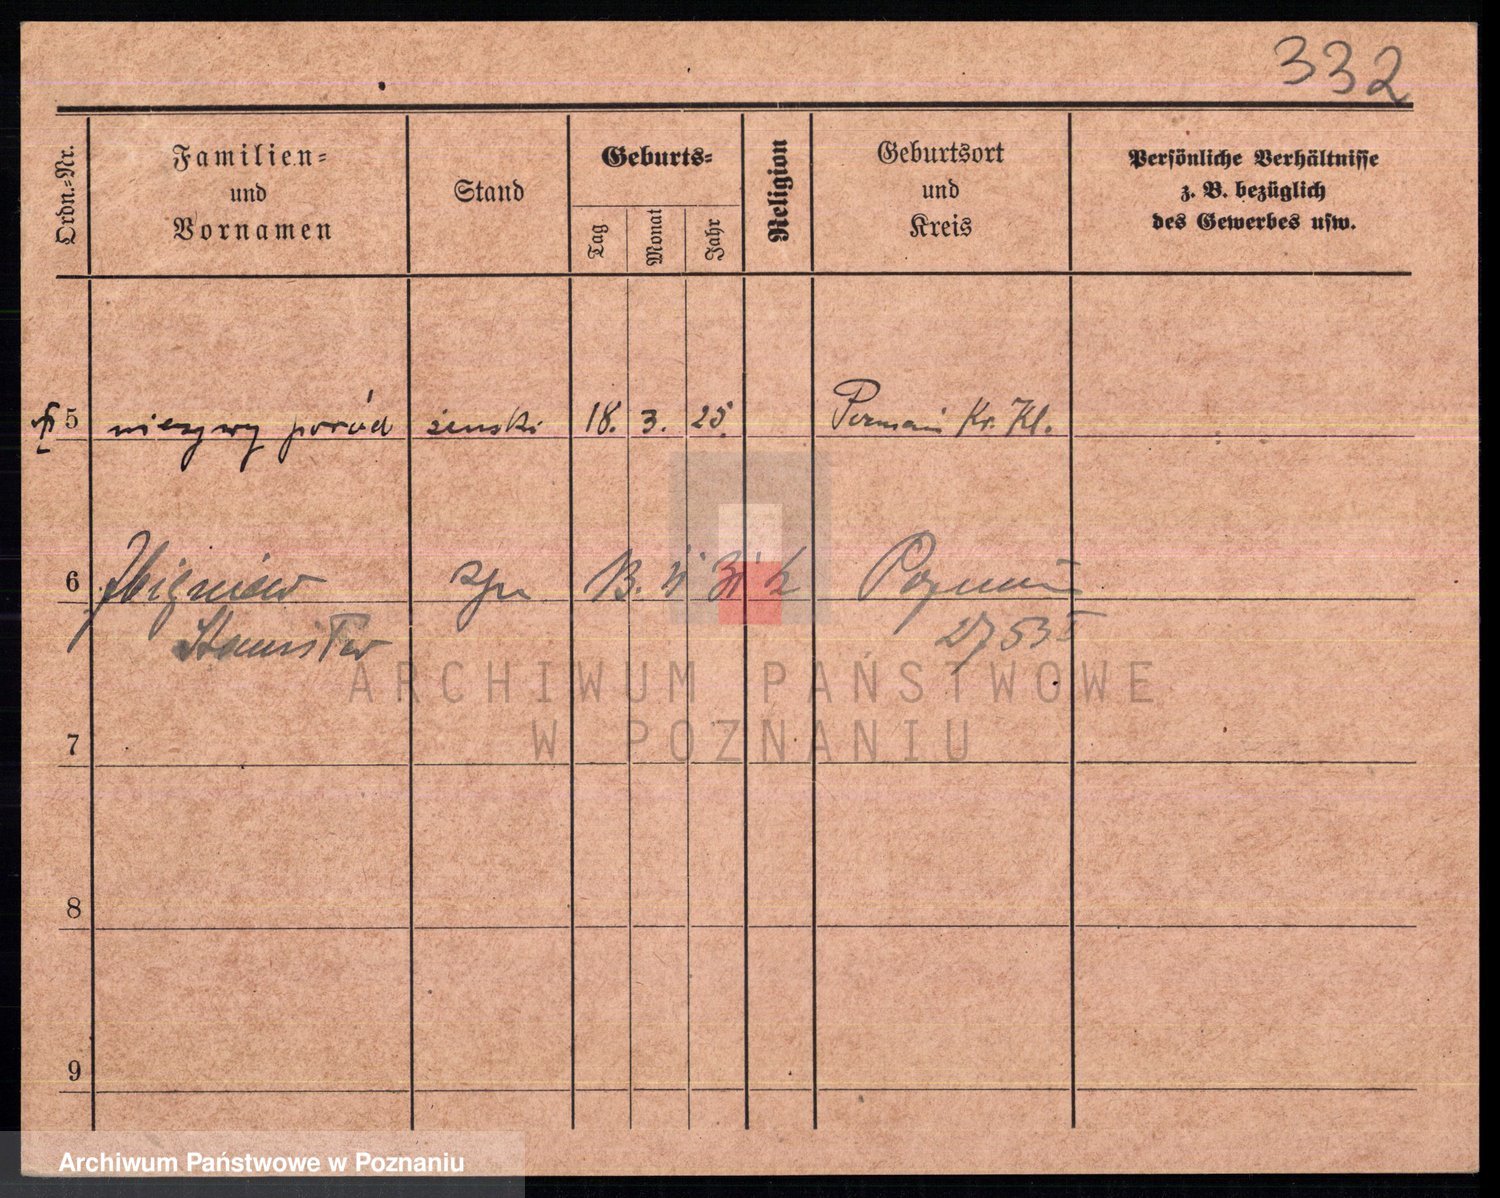 332
Ordn.-Nr.
Familien-
und
Vornamen
Stand
Geburts-
Tag
Monat
Jahr
Religion
Geburtsort
und
Kreis
Persönliche Verhältnisse
z. B. bezüglich
des Gewerbes usw.
5 nieżywy poród żeński 18. 3. 25. Poznań Kr. Kl.
6 Zbigniew syn 13. 4 31 k Poznań
Stanisław 2753 I
ARCHIWUM PAŃSTWOWE
W POZNANIU
7
8
9
Archiwum Państwowe w Poznaniu